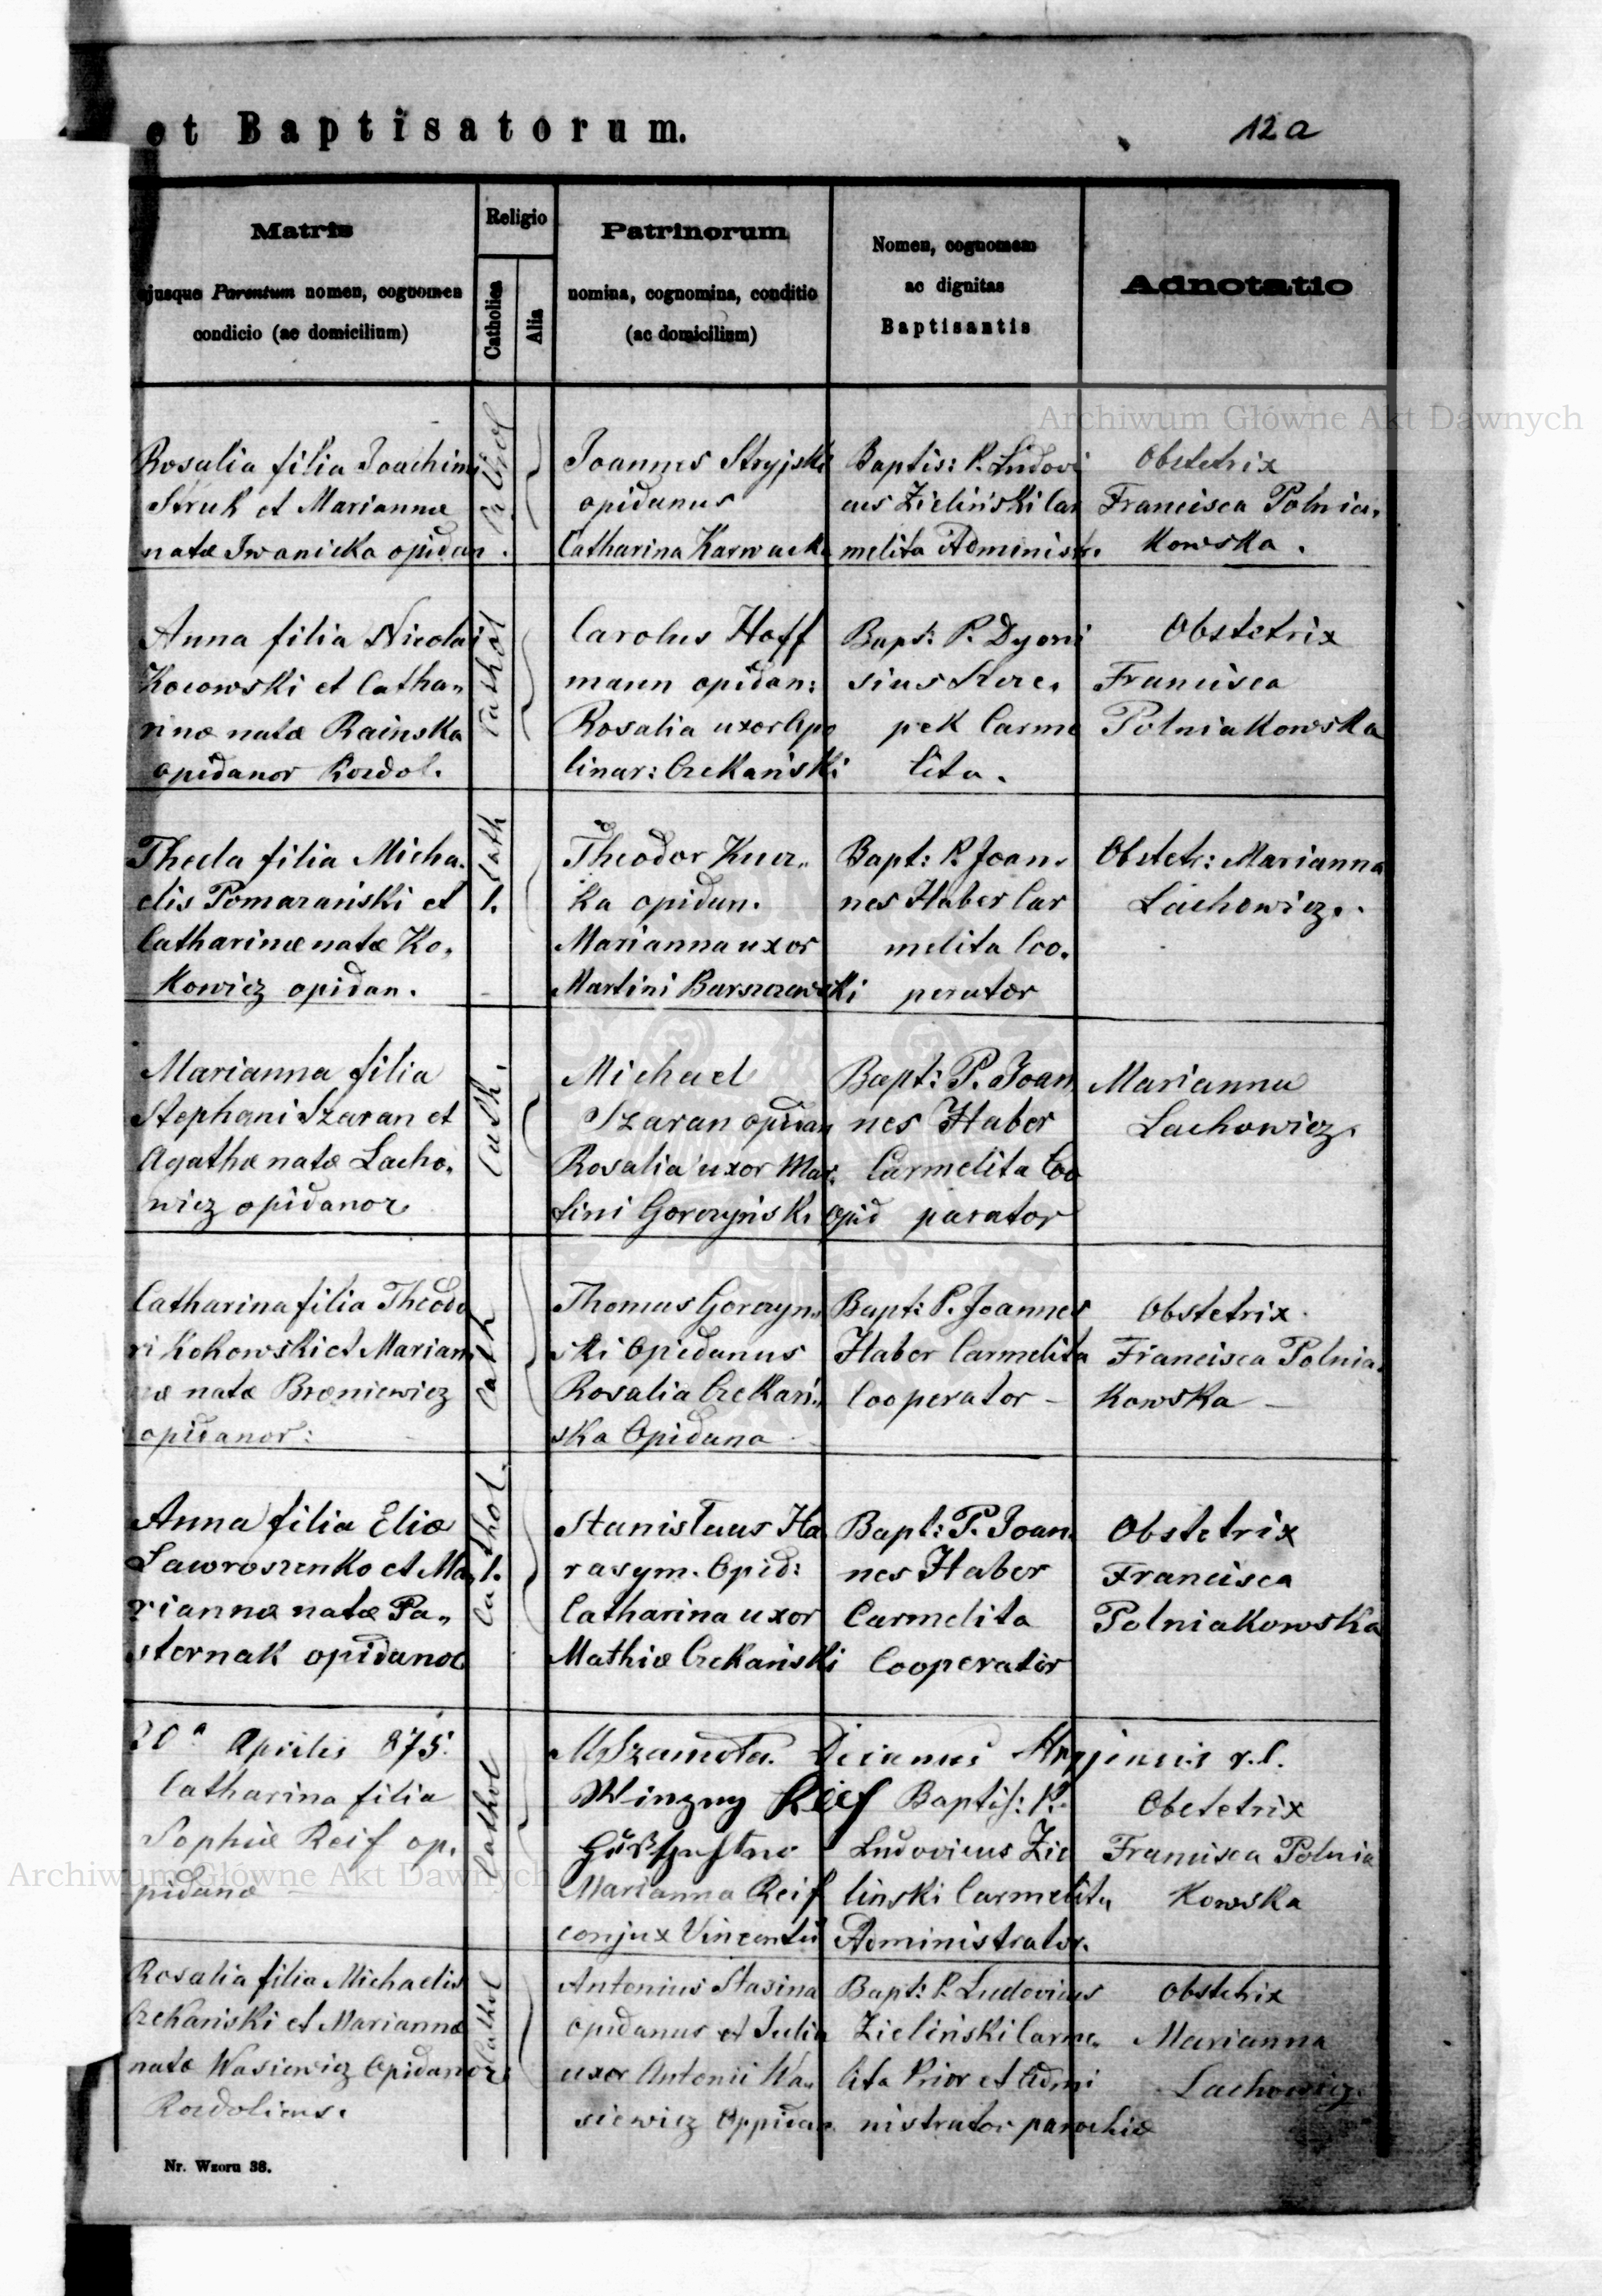 et Baptisatorum.
12a
Matris
ejusque Parentum nomen, cognomen
condicio (ac domicilium)
Religio
Catholica
Alia
Patrinorum
nomina, cognomina, conditio
(ac domicilium)
Nomen, cognomen
ac dignitas
Baptisantis
Adnotatio
Archiwum Główne Akt Dawnych
Rosalia filia Joachimi
Struk et Marianne
natæ Iwanicka opidan.
Joannes Stryjski
opidanus
Catharina Karwacka
Baptis: P. Ludovi
cus Zieliński Car
melita Administr.
Obstetrix
Francisca Polnia,
kowska.
Anna filia Nicolai
Kocowski et Catha„
rinæ natæ Rainska
opidanor Rozdol.
Cathol
Carolus Hoff
mann opidan:
Rosalia uxor Apo
linar: Czekański
Bapt: P. Dyoni
sius
pek Carme
lita.
Obstetrix
Francisca
Polniakowska
Thecla filia Micha.
elis Pomarański et
Catharinæ natæ Ko.
kowicz opidan.
Cath
Theodor Kucz„
ka opidan.
Marianna uxor
Martini Barszczewski
Bapt: P. Joan.
nes Haber Car
melita Coo.
perator
Obstetr: Marianna
Lachowicz.
Marianna filia
Stephani Szaran et
Agathæ natæ Lacho„
wicz opidanor
Cath.
Michael
Szaran opidan
Rosalia uxor Mar.
tini Gorczyński opid
Bapt: P. Joan
nes Haber
Carmelita Coo
parator
Marianna
Lachowicz.
Catharina filia Theodo
ri Kokowski et Marian
næ natæ Broniewicz
opidanor:
Cath
Thomas Gorczyn„
ski Opidanus
Rosalia Czekań„
ska Opidana
Bapt: P. Joannes
Haber Carmelita
Cooperator –
Obstetrix
Francisca Polnia.
kowska –
Anna filia Eliæ
Lawroszenko et Ma„
riannæ natæ Pa„
sternak opidanor
Cathol.
Stanislaus Ha
rasym. Opid:
Catharina uxor
Mathiæ Czekański
Bapt: P. Joan.
nes Haber
Carmelita
Cooperator
Obstetrix
Francisca
Polniakowska
20ª Aprilis 875.
Decanus Stryjensis r.l.
Catharina filia
Sophiæ Reif op.
pidanæ –
Cathol
Reif
Marianna Reif
conjux Vincentii
Baptis: P.
Ludovicus Zie
linski Carmelita,
Administrator.
Obstetrix
Francisca Polnia
kowska
Archiwum Główne Akt Dawnych
Rosalia filia Michaelis
Czekański et Mariannæ
natæ Wasiewicz Opidanor:
Rozdoliens.
Cathol
Antonius Stasina
opidanus et Julia
uxor Antonii Wa„
siewicz Oppidan.
Bapt: P. Ludovicus
Zieliński Carme.
lita Prior et Admi
nistrator parochiæ
Obstetrix
Marianna
Lachowicz
Nr. Wzoru 38.